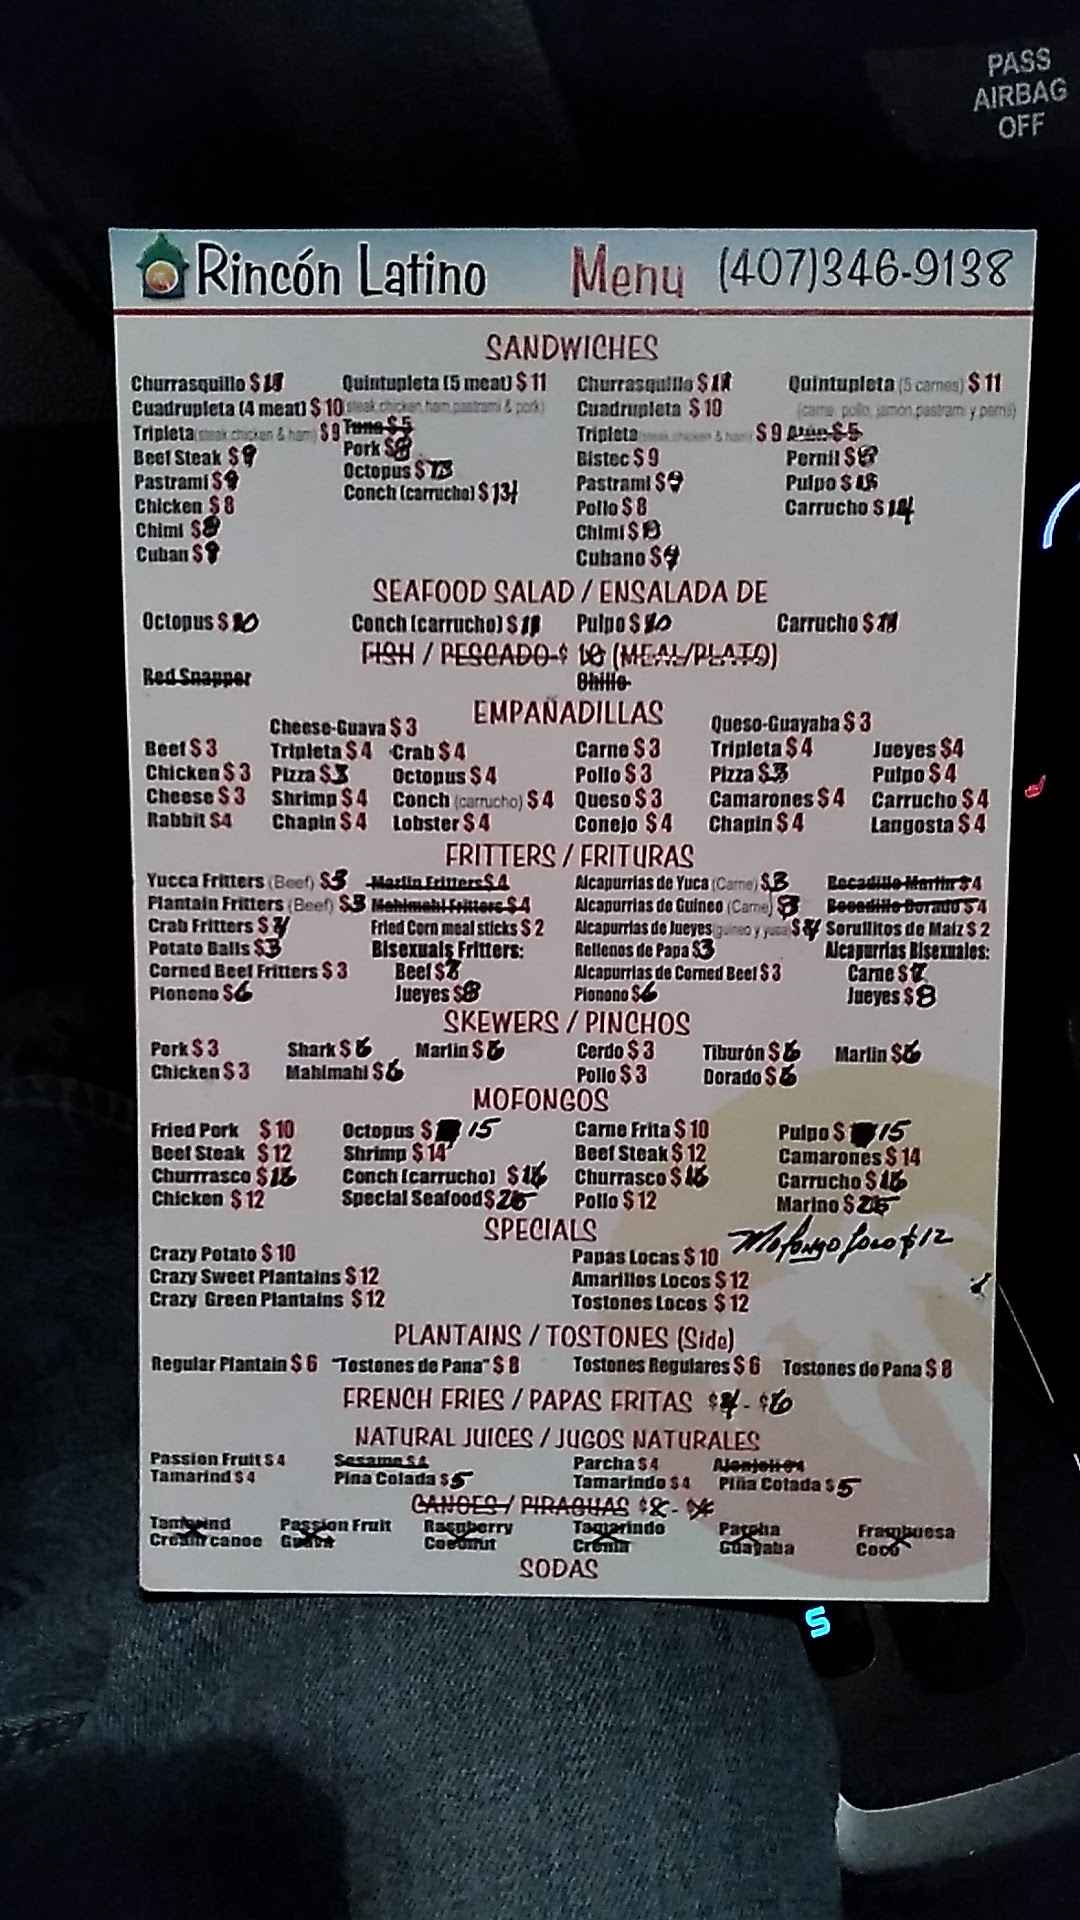 PASS
AIRBAG
OFF
Rincón Latino Menu (407)346-9138
SANDWICHES
Churrasquillo $ Quintupleta (5 meat) $ 11 Churrasquillo $ Quintupleta (5 carnes) $ 11
Cuadrupleta (4 meat) $ 10 (steak,chicken,ham,pastrami & pork) Cuadrupleta $ 10 (carne, pollo, jamon,pastrami y pernil)
Tripleta (steak,chicken & ham) $ 9 Tuna $ 5 Tripleta (steak,chicken & ham) $ 9 Atun $ 5
Beef Steak $ 9 Pork $ 8 Bistec $ 9 Pernil $ 8
Pastrami $ 9 Octopus $ 13 Pastrami $ 9 Pulpo $
Chicken $ 8 Conch (carrucho) $ Pollo $ 8 Carrucho $
Chimi $ 8 Chimi $
Cuban $ 9 Cubano $ 9
SEAFOOD SALAD / ENSALADA DE
Octopus $ 10 Conch (carrucho) $ 11 Pulpo $ 10 Carrucho $ 11
FISH / PESCADO $ 10 (MEAL/PLATO)
Red Snapper Chillo
EMPAÑADILLAS
Cheese-Guava $ 3 Queso-Guayaba $ 3
Beef $ 3 Tripleta $ 4 Crab $ 4 Carne $ 3 Tripleta $ 4 Jueyes $ 4
Chicken $ 3 Pizza $ 3 Octopus $ 4 Pollo $ 3 Pizza $ 3 Pulpo $ 4
Cheese $ 3 Shrimp $ 4 Conch (carrucho) $ 4 Queso $ 3 Camarones $ 4 Carrucho $ 4
Rabbit $4 Chapin $ 4 Lobster $ 4 Conejo $ 4 Chapin $ 4 Langosta $ 4
FRITTERS / FRITURAS
Yucca Fritters (Beef) $3 Marlin Fritters $ 4 Alcapurrias de Yuca (Carne) $3 Bocadillo Marlin $ 4
Plantain Fritters (Beef) $3 Mahimahi Fritters $ 4 Alcapurrias de Guineo (Carne) $3 Bocadillo Dorado $ 4
Crab Fritters $ 4 Fried Corn meal sticks $ 2 Alcapurrias de Jueyes (guineo y yuca) $ 4 Sorullitos de Maiz $ 2
Potato Balls $ 3 Bisexuals Fritters: Rellenos de Papa $ 3 Alcapurrias Bisexuales:
Corned Beef Fritters $ 3 Beef $ 7 Alcapurrias de Corned Beef $ 3 Carne $ 7
Pionono $ 6 Jueyes $ 8 Pionono $ 6 Jueyes $ 8
SKEWERS / PINCHOS
Pork $ 3 Shark $ 6 Marlin $ 6 Cerdo $ 3 Tiburón $ 6 Marlin $ 6
Chicken $ 3 Mahimahi $ 6 Pollo $ 3 Dorado $ 6
MOFONGOS
Fried Pork $ 10 Octopus $ 15 Carne Frita $ 10 Pulpo $ 15
Beef Steak $ 12 Shrimp $ 14 Beef Steak $ 12 Camarones $ 14
Churrrasco $ 16 Conch (carrucho) $ 16 Churrasco $ 16 Carrucho $ 16
Chicken $ 12 Special Seafood $ 25 Pollo $ 12 Marino $ 25
SPECIALS Mofongo Loco $ 12
Crazy Potato $ 10 Papas Locas $ 10
Crazy Sweet Plantains $ 12 Amarillos Locos $ 12
Crazy Green Plantains $ 12 Tostones Locos $ 12
PLANTAINS / TOSTONES (Side)
Regular Plantain $ 6 "Tostones de Pana" $ 8 Tostones Regulares $ 6 Tostones de Pana $ 8
FRENCH FRIES / PAPAS FRITAS $4 - $6
NATURAL JUICES / JUGOS NATURALES
Passion Fruit $ 4 Sesame $ 4 Parcha $ 4 Ajonjoli $ 4
Tamarind $ 4 Pina Colada $ 5 Tamarindo $ 4 Piña Colada $ 5
CANOES / PIRAGUAS $2 -
Tamarind Passion Fruit Raspberry Tamarindo Parcha Frambuesa
Cream canoe Guava Coconut Crema Guayaba Coco
SODAS
S